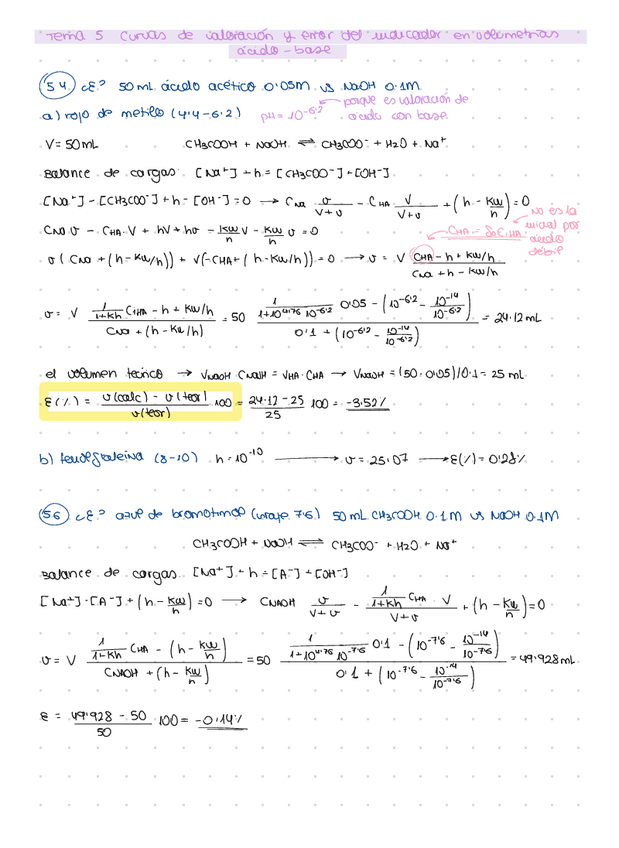 Tema 5 Curvas de valoración y error del indicador en volumetrias
ácido-base
54. ¿E? 50mL ácido acético 0'05M vs NaOH 0'1M
a) rojo de metilo (4'4-6'2) pH = 10^-6'2 ← porque es valoración de
ácido con base
V=50mL CH3COOH + NaOH ⇌ CH3COO⁻ + H2O + Na⁺
Balance de cargas: [Na⁺] + h = [CH3COO⁻] + [OH⁻]
[Na⁺] - [CH3COO⁻] + h - [OH⁻] = 0 → CNa v/(V+v) - CHA V/(V+v) + (h - Kw/h) = 0
CNa v - CHA V + hV + hv - Kw/h V - Kw/h v = 0
CHA = δ0 CHA
No es la
inicial por
ácido
débil
v (CNa + (h - Kw/h)) + V(-CHA + (h - Kw/h)) = 0 → v = V (CHA - h + Kw/h)/(CNa + h - Kw/h)
v = V (1/(1+Kh) CHA - h + Kw/h)/(CNa + (h - Kw/h)) = 50 (1/(1+10^4'76 10^-6'2) 0'05 - (10^-6'2 - 10^-14/10^-6'2))/(0'1 + (10^-6'2 - 10^-14/10^-6'2)) = 24'12 mL
el volumen teórico → VNaOH CNaOH = VHA · CHA → VNaOH = (50 · 0'05)/0'1 = 25 mL
E(%) = (v(calc) - v(teor))/v(teor) · 100 = (24'12 - 25)/25 100 = -3'52%
b) fenolftaleína (8-10) h = 10^-10 → v = 25'07 → E(%) = 0'28%
56 ¿E? azul de bromotimol (viraje 7'6) 50 mL CH3COOH 0'1M vs NaOH 0'1M
CH3COOH + NaOH ⇌ CH3COO⁻ + H2O + Na⁺
Balance de cargas: [Na⁺] + h = [A⁻] + [OH⁻]
[Na⁺] - [A⁻] + (h - Kw/h) = 0 → CNaOH v/(V+v) - (1/(1+Kh) CHA · V)/(V+v) + (h - Kw/h) = 0
v = V (1/(1+Kh) CHA - (h - Kw/h))/(CNaOH + (h - Kw/h)) = 50 (1/(1+10^4'76 10^-7'6) 0'1 - (10^-7'6 - 10^-14/10^-7'6))/(0'1 + (10^-7'6 - 10^-14/10^-7'6)) = 49'928 mL
E = (49'928 - 50)/50 · 100 = -0'14%